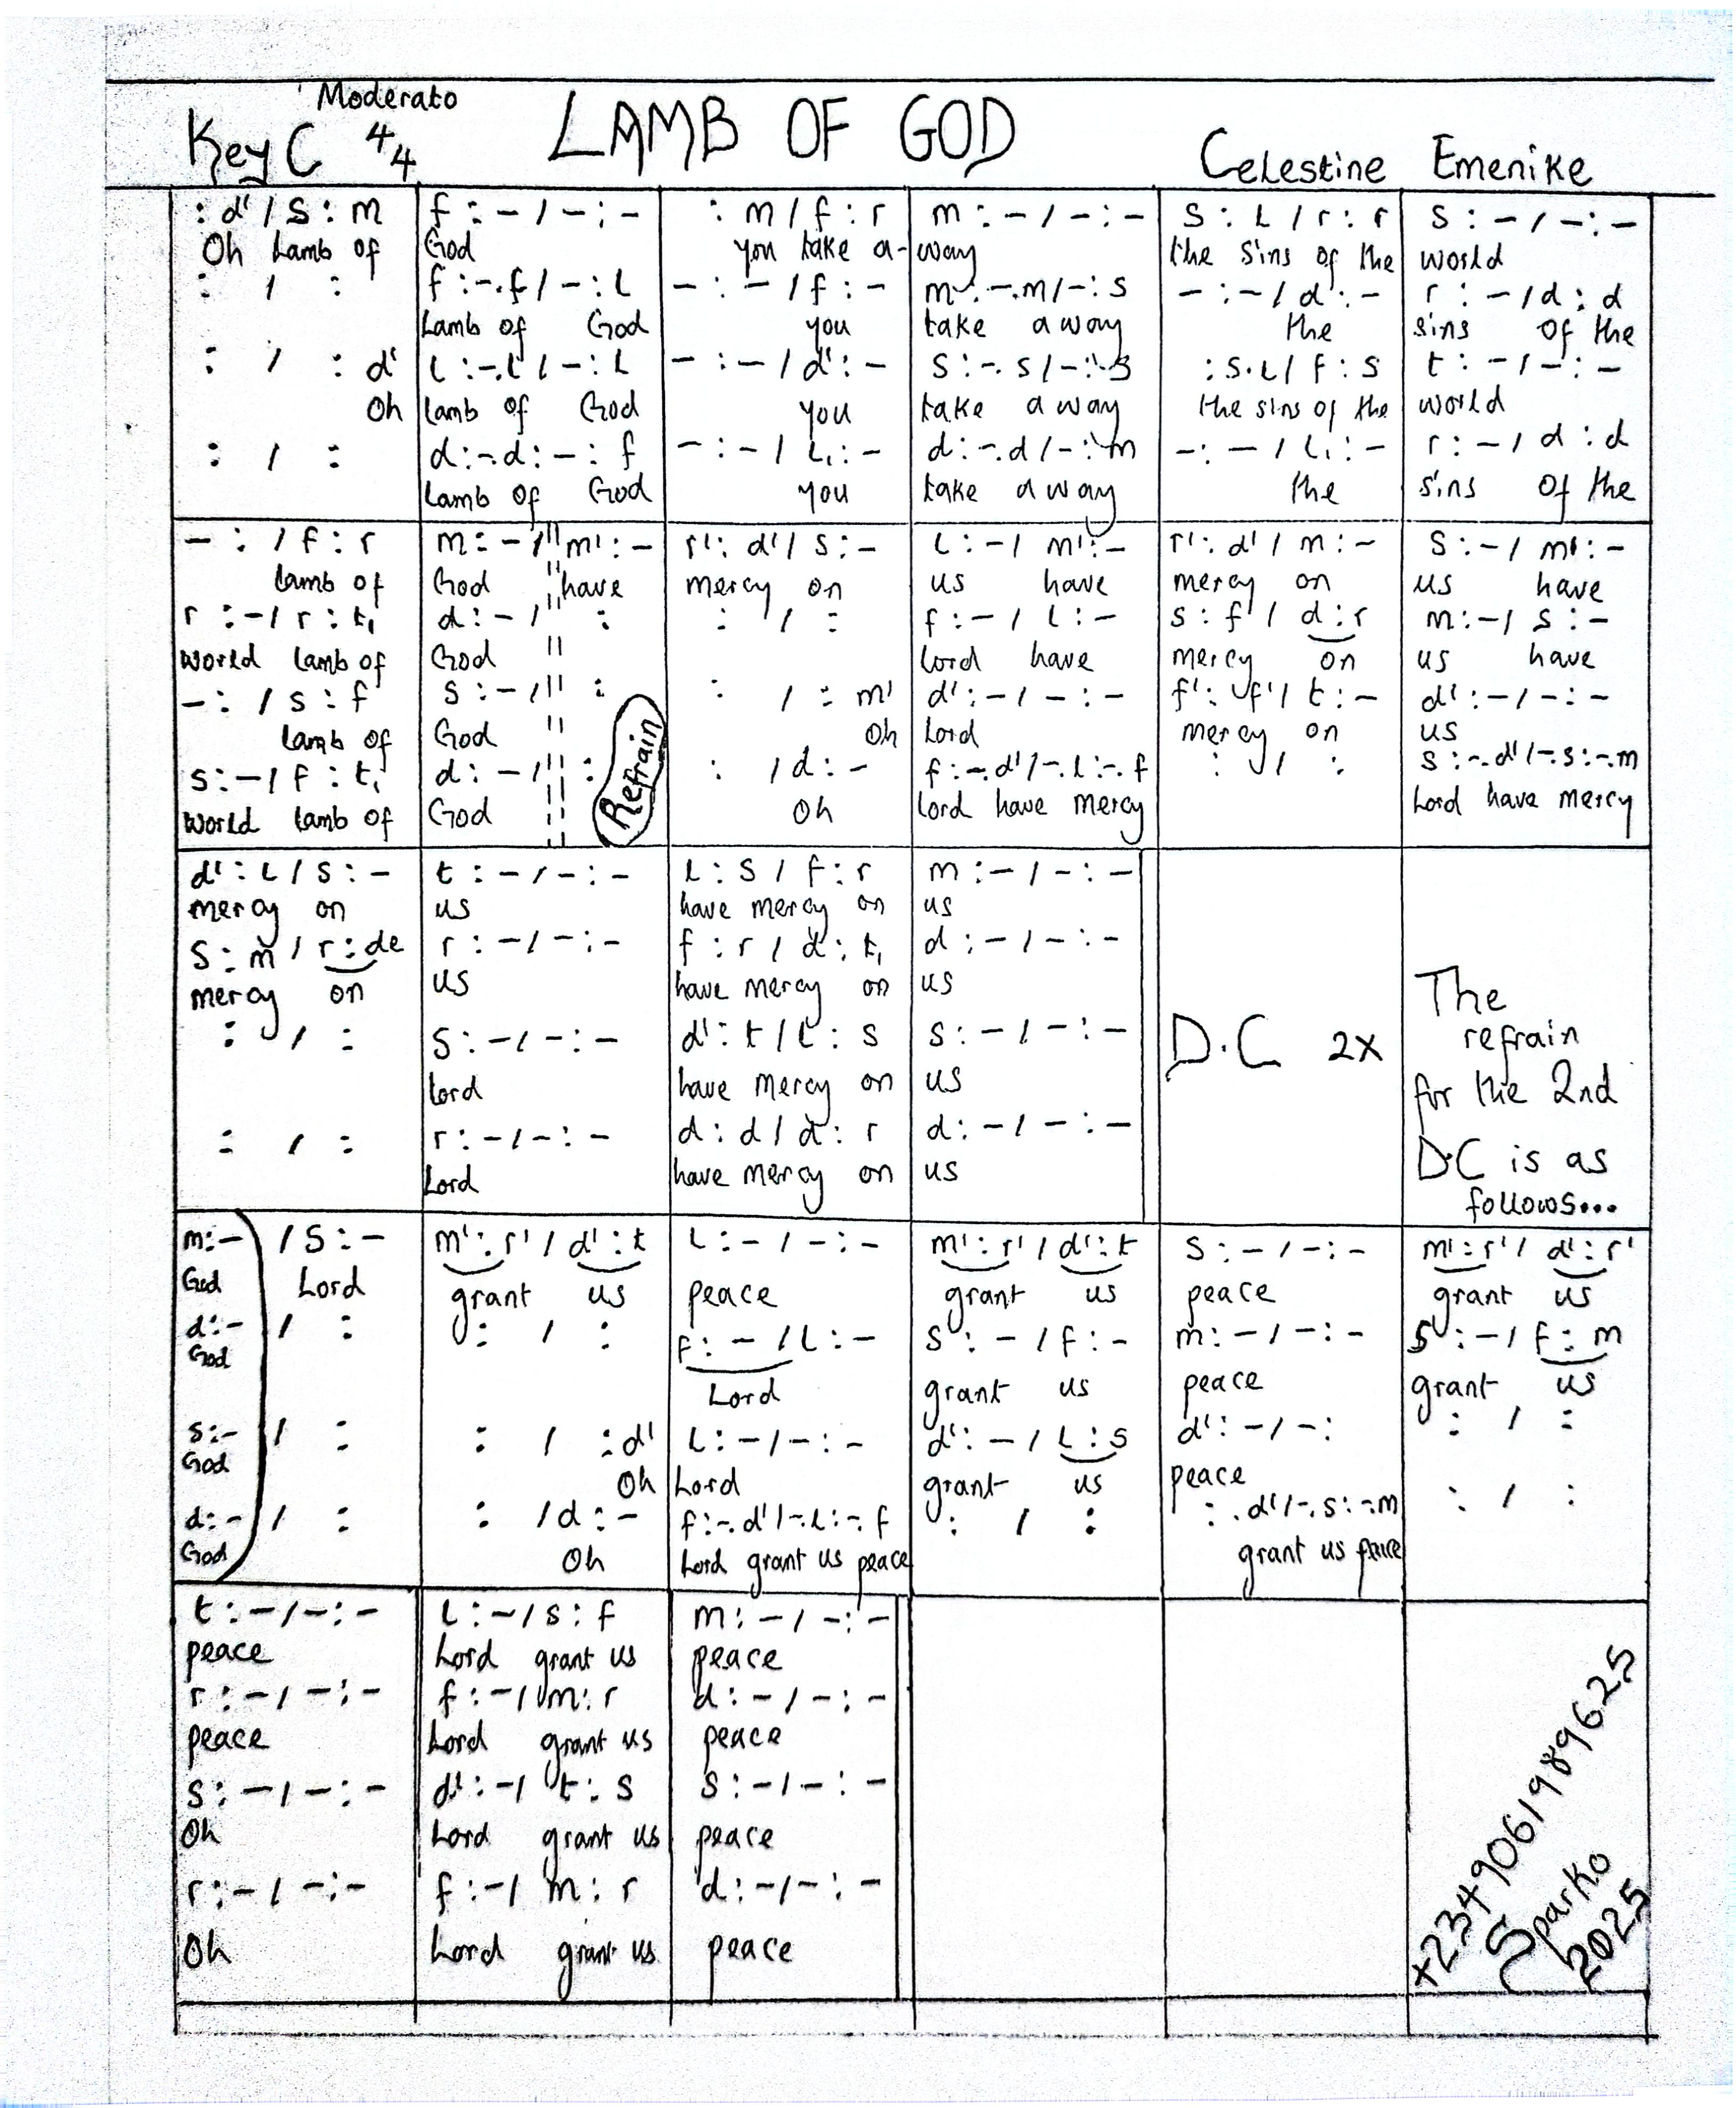 Moderato
Key C 4/4 LAMB OF GOD
Celestine Emenike
: d' / s : m | f : – / – : – | : m / f : r | m : – / – : – | s : l / r : r | s : – / – : –
Oh Lamb of | God | you take a- | way | the sins of the | world
: / : | f : –.f / – : l | – : – / f : – | m : –.m / – : s | – : – / d : – | r : – / d : d
Lamb of God | you | take away | the | sins of the
: / : d' | l : –.l / – : l | – : – / d' : – | s : –.s / – : s | : s.l / f : s | t : – / – : –
Oh | lamb of God | you | take away | the sins of the | world
: / : | d : –.d : – : f | – : – / l, : – | d : –.d / – : m | – : – / l, : – | r : – / d : d
Lamb of God | you | take away | the | sins of the
– : / f : r | m : – / m' : – | r' : d' / s : – | l : – / m' : – | r' : d' / m : – | s : – / m' : –
lamb of | God have | mercy on | us have | mercy on | us have
r : – / r : t, | d : – / : | : / : | f : – / l : – | s : f / d : r | m : – / s : –
world lamb of | God | lord have | mercy on | us have
– : / s : f | s : – / : | : / : m' | d' : – / – : – | f' : f' / t : – | d' : – / – : –
lamb of | God | Oh | Lord | mercy on | us
s : – / f : t, | d : – / : | : / d : – | f : –.d' / –.l : –.f | : / : | s : –.d' / –.s : –.m
world lamb of | God | Oh | lord have mercy | Lord have mercy
Refrain
d' : l / s : – | t : – / – : – | l : s / f : r | m : – / – : –
mercy on | us | have mercy on | us
s : m / r : de | r : – / – : – | f : r / d : t, | d : – / – : –
mercy on | us | have mercy on | us
: / : | s : – / – : – | d' : t / l : s | s : – / – : –
lord | have mercy on | us
: / : | r : – / – : – | d : d / d : r | d : – / – : –
Lord | have mercy on | us
D.C 2x
The
refrain
for the 2nd
D.C is as
follows...
m : – / s : – | m' : r' / d' : t | l : – / – : – | m' : r' / d' : t | s : – / – : – | m' : r' / d' : r'
God Lord | grant us | peace | grant us | peace | grant us
d : – / : | : / : | f : – / l : – | s : – / f : – | m : – / – : – | s : – / f : m
God | Lord | grant us | peace | grant us
s : – / : | : / : d' | l : – / – : – | d' : – / l : s | d' : – / – : | : / :
God | Oh | Lord | grant us | peace
d : – / : | : / d : – | f : –.d' / –.l : –.f | : / : | : .d' / –.s : –.m | : / :
God | Oh | Lord grant us peace | grant us peace
t : – / – : – | l : – / s : f | m : – / – : –
peace | Lord grant us | peace
r : – / – : – | f : – / m : r | d : – / – : –
peace | Lord grant us | peace
s : – / – : – | d' : – / t : s | s : – / – : –
Oh | Lord grant us | peace
r : – / – : – | f : – / m : r | d : – / – : –
Oh | Lord grant us | peace
+2349061989625
Sparko
2025